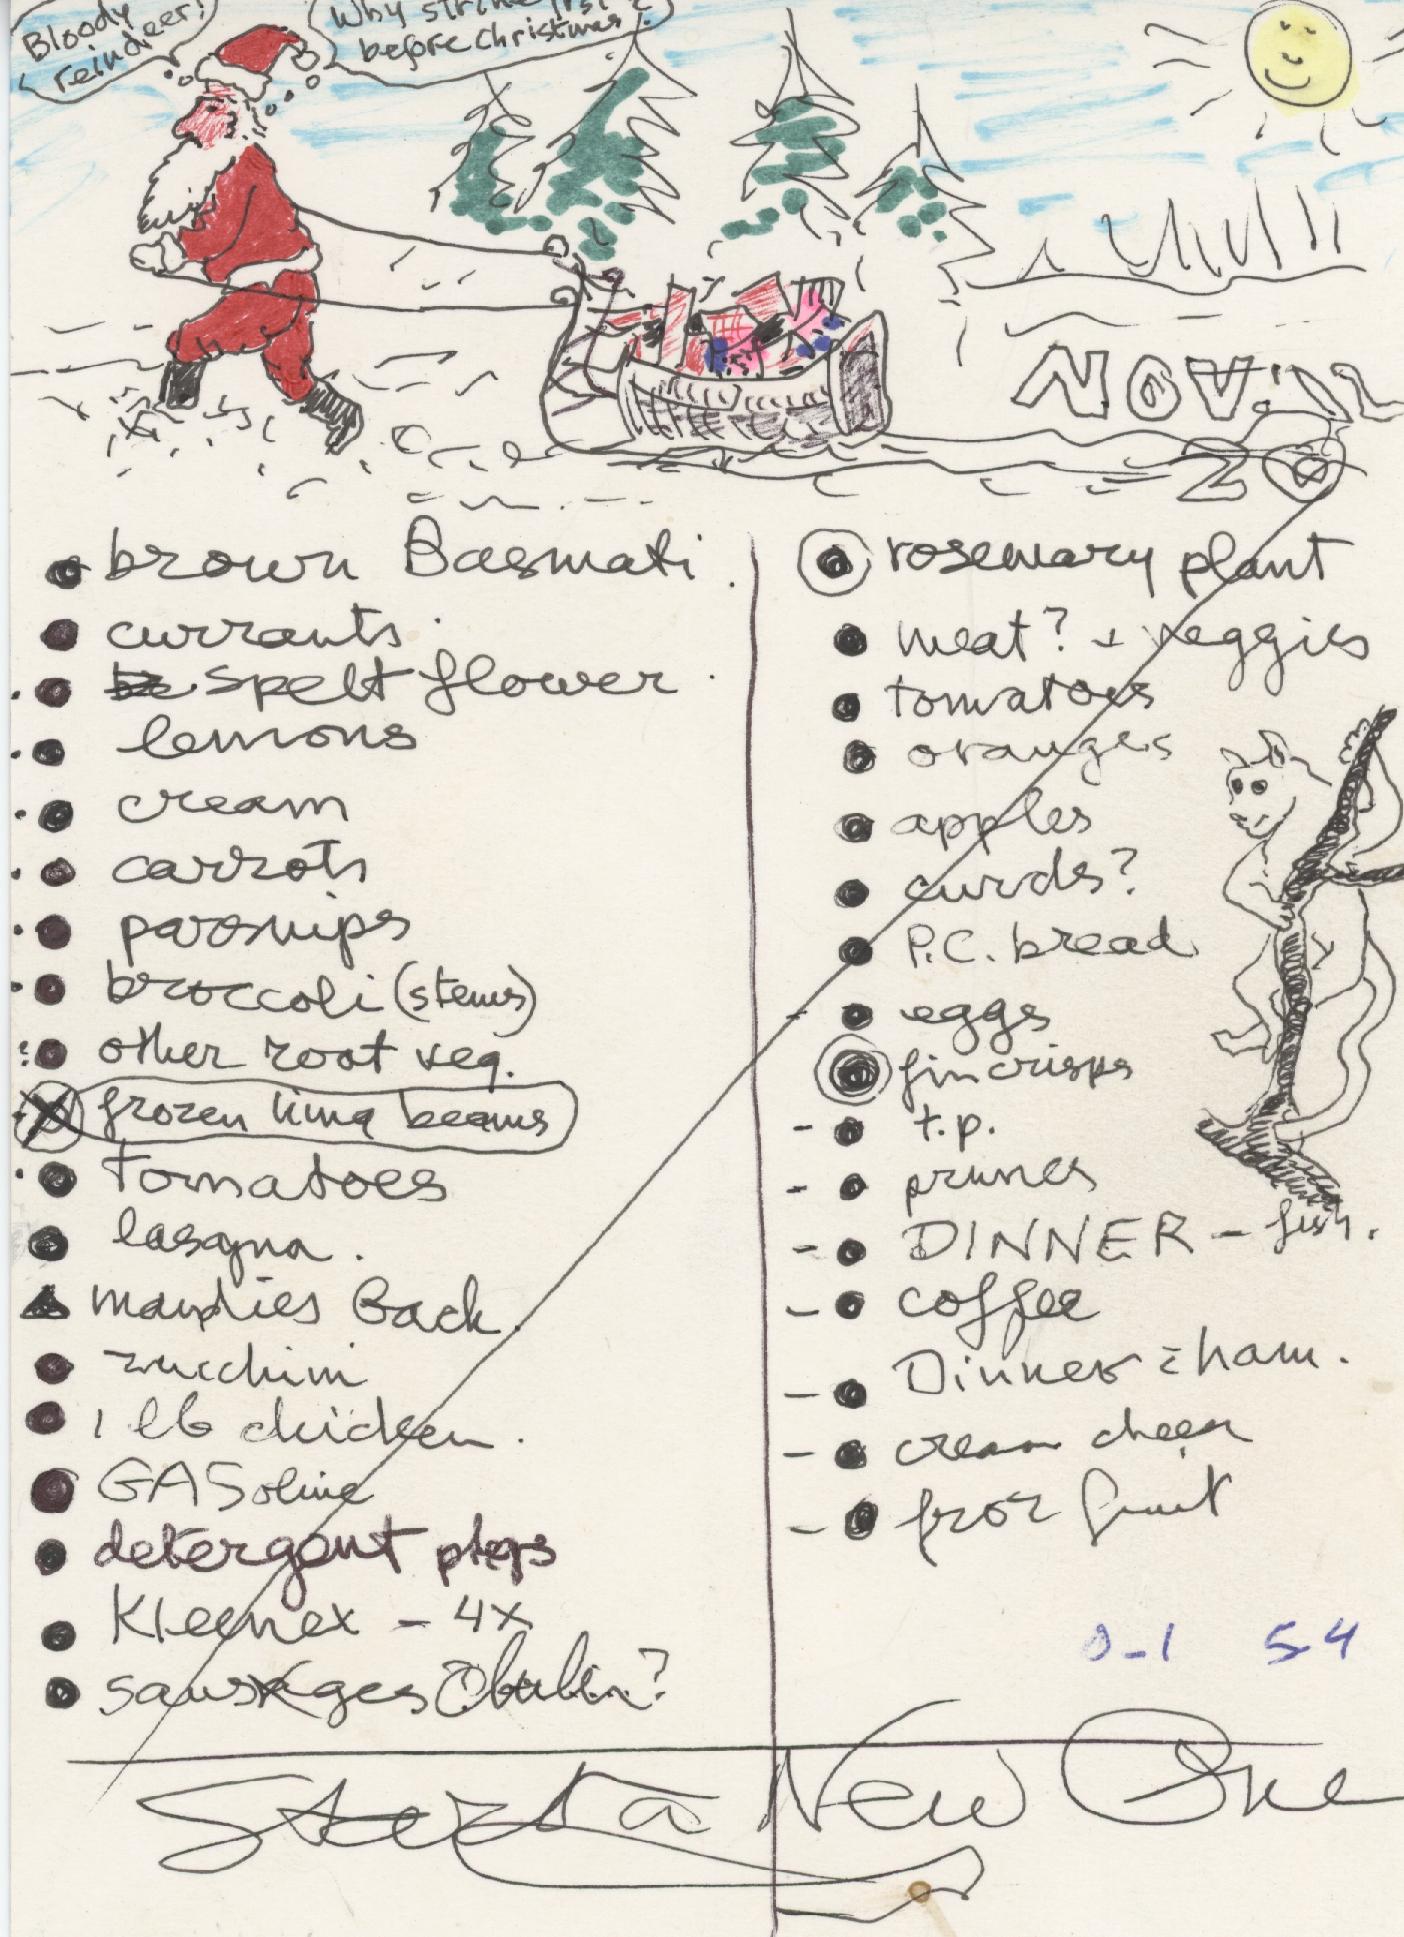 Bloody
reindeer!
Why strike just
before christmas?
NOV. 12
20
brown Basmati.
currants.
spelt flower.
lemons
cream
carrots
parsnips
broccoli (stems)
other root veg.
frozen lima beans
Tomatoes
lasagna.
Back.
zucchini
1 lb chicken.
GASoline
detergent
Kleenex - 4x
sausages ?
rosemary plant
meat? + veggies
tomatoes
oranges
apples
curds?
P.C. bread
eggs
fin crisps
t.p.
prunes
DINNER - fish.
coffee
Dinner = ham.
cream chees
froz fruit
0-1 54
Start a New One